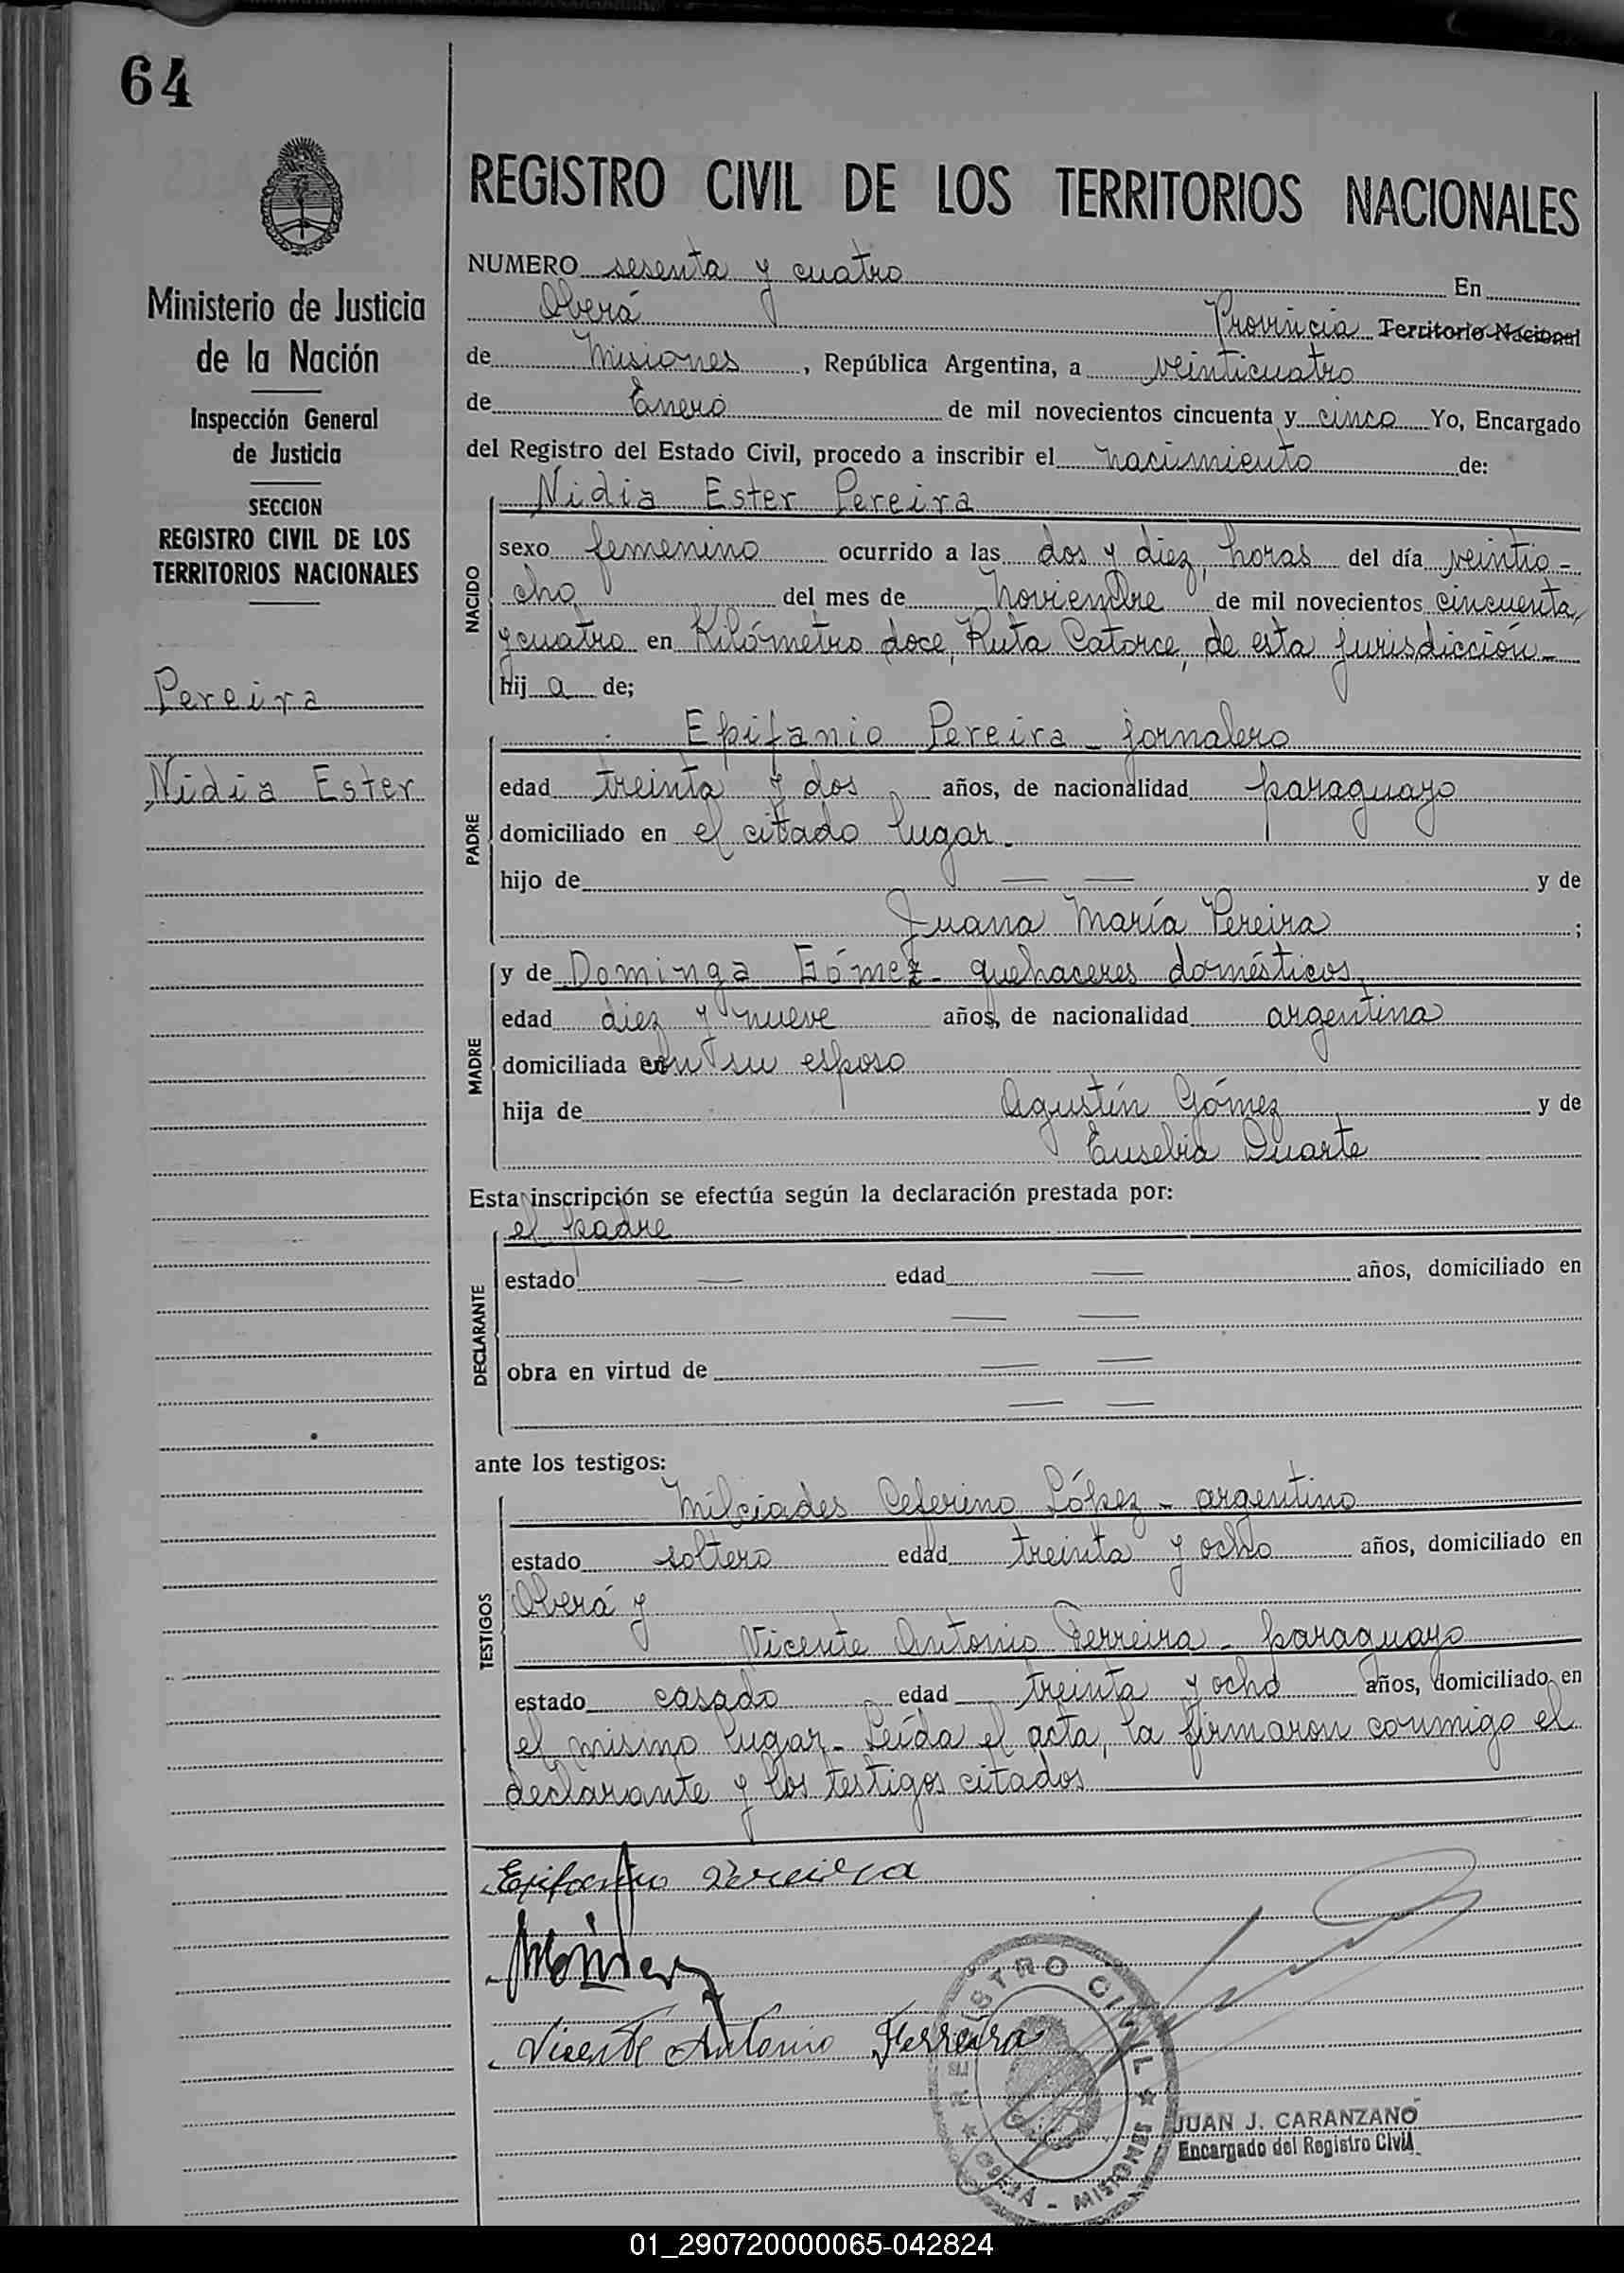 64
REGISTRO CIVIL DE LOS TERRITORIOS NACIONALES
Ministerio de Justicia
de la Nación
Inspección General
de Justicia
SECCION
REGISTRO CIVIL DE LOS
TERRITORIOS NACIONALES
Pereira
Nidia Ester
NUMERO sesenta y cuatro En
Oberá Provincia Territorio Nacional
de Misiones, República Argentina, a veinticuatro
de Enero de mil novecientos cincuenta y cinco Yo, Encargado
del Registro del Estado Civil, procedo a inscribir el nacimiento de:
NACIDO
Nidia Ester Pereira
sexo femenino ocurrido a las dos y diez, horas del día veintio-
cho del mes de Noviembre de mil novecientos cincuenta
y cuatro en Kilómetro doce, Ruta Catorce, de esta jurisdicción-
hija de;
PADRE
Epifanio Pereira - jornalero
edad treinta y dos años, de nacionalidad paraguayo
domiciliado en el citado lugar-
hijo de — — y de
Juana María Pereira;
MADRE
y de Dominga Gómez - quehaceres domésticos
edad diez y nueve años, de nacionalidad argentina
domiciliada con su esposo
hija de Agustín Gómez y de
Eusebia Duarte
Esta inscripción se efectúa según la declaración prestada por:
DECLARANTE
el padre
estado — edad — años, domiciliado en
— —
obra en virtud de — —
— —
ante los testigos:
TESTIGOS
Milciades Ceferino López - argentino
estado soltero edad treinta y ocho años, domiciliado en
Oberá y
Vicente Antonio Ferreira - paraguayo
estado casado edad treinta y ocho años, domiciliado en
el mismo lugar- Leída el acta, la firmaron conmigo el
declarante y los testigos citados
Epifanio Pereira
Vicente Antonio Ferreira
REGISTRO CIVIL
OBERÁ - MISIONES
JUAN J. CARANZANO
Encargado del Registro Civil
01_290720000065-042824